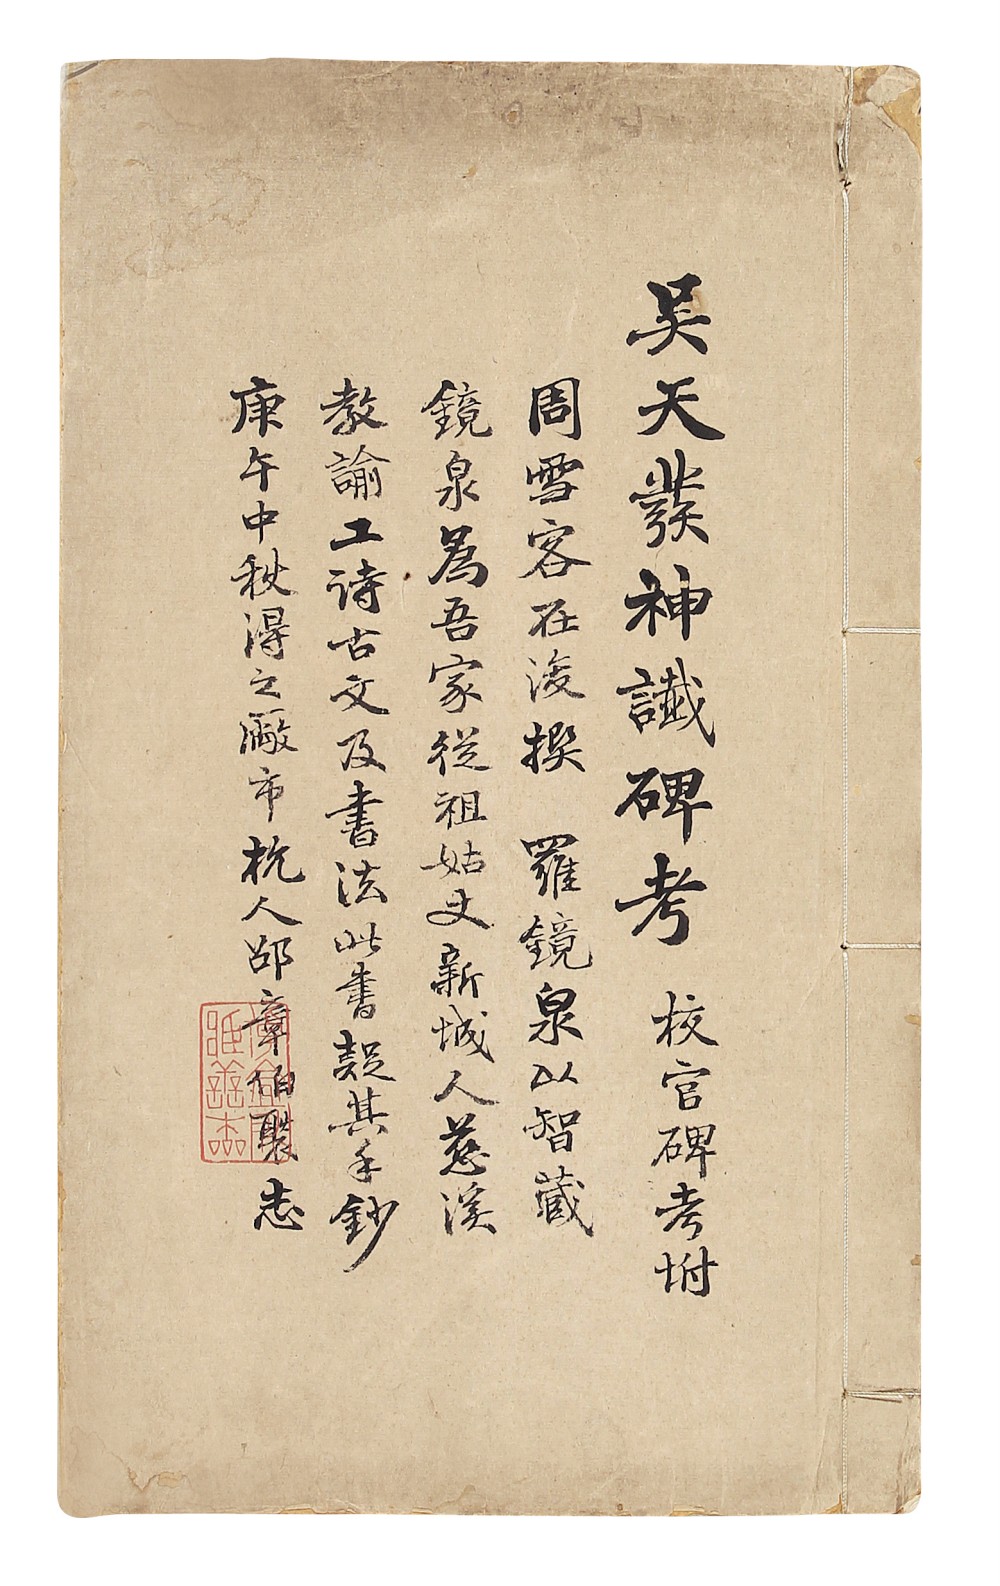 吴天發神讖碑考 校官碑考坿
周雪客在浚撰 羅鏡泉以智藏
鏡泉為吾家從祖姑丈新城人慈溪
教諭工詩古文及書法此書疑其手鈔
庚午中秋得之廠市杭人邵章伯褧志